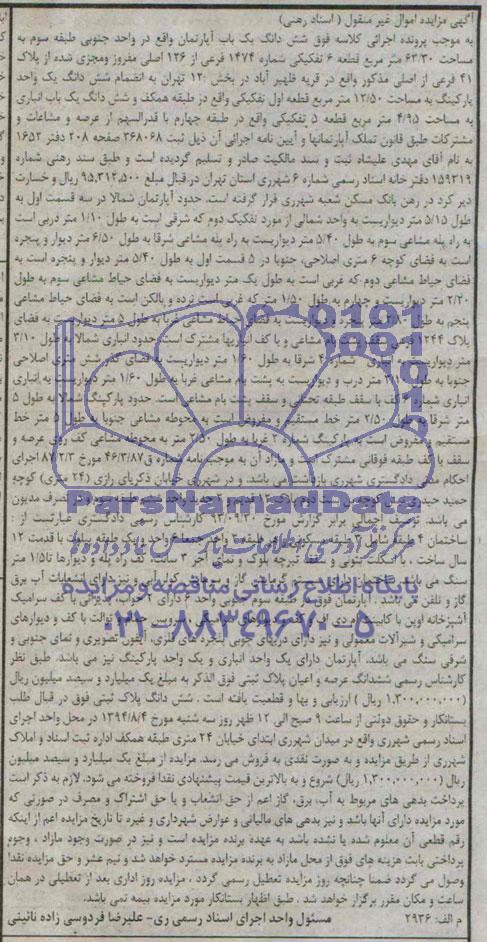 آگهی مزایده اموال غیر منقول ( اسناد رهنی)
به موجب پرونده اجرائی کلاسه فوق شش دانگ یک باب آپارتمان واقع در واحد جنوبی طبقه سوم به
مساحت ۶۲/۳۰ متر مربع قطعه ۶ تفکیکی شماره ۱۴۷۴ فرعی از ۱۲۶ اصلی مفروز ومجزی شده از پلاک
۴۱ فرعی از اصلی مذکور واقع در قریه ظهیر آباد در بخش ۱۲ تهران به انضمام شش دانگ یک واحد
پارکینگ به مساحت ۱۲/۵۰ متر مربع قطعه اول تفکیکی واقع در طبقه همکف و شش دانگ یک باب انباری
به مساحت ۴/۹۵ متر مربع قطعه ۵ تفکیکی واقع در طبقه چهارم با قدرالسهم از عرصه و مشاعات و
مشترکات طبق قانون تملک آپارتمانها و آیین نامه اجرائی آن ذیل ثبت ۳۶۸۰۶۸ صفحه ۲۰۸ دفتر ۱۶۵۲
به نام آقای مهدی علیشاه ثبت و سند مالکیت صادر و تسلیم گردیده است و طبق سند رهنی شماره
۱۵۹۳۱۹ دفتر خانه اسناد رسمی شماره ۶ شهرری استان تهران در قبال مبلغ ۹۵,۳۱۲,۵۰۰ ریال و خسارت
دیر کرد در رهن بانک مسکن شعبه شهرری قرار گرفته است. حدود آپارتمان شمالا در سه قسمت اول به
طول ۵/۱۵ متر دیواریست به واحد شمالی از مورد تفکیک دوم که شرقی است به طول ۱/۱۰ متر دربی است
به راه پله مشاعی سوم به طول ۵/۴۰ متر دیواریست به راه پله مشاعی شرقا به طول ۶/۵۰ متر دیوار و پنجره
است به فضای کوچه ۶ متری اصلاحی، جنوبا در ۵ قسمت اول به طول ۵/۴۰ متر دیوار و پنجره است به
فضای حیاط مشاعی دوم که غربی است به طول یک متر دیواریست به فضای حیاط مشاعی سوم به طول
۲/۲۰ متر دیواریست و چهارم به طول ۱/۵۰ متر که غربی است نرده و بالکن است به فضای حیاط مشاعی
پنجم به طول متر پنجره و دیواریست به فضای حیاط مشاعی غربا به طول ۵ متر دیواریست به فضای
پلاک ۱۲۴۴ فرعی سقف پشت بام مشاعی و با کف انباریها مشترک است. حدود انباری شمالا به طول ۳/۱۰
متر دیواریست به انباری شماره ۴ شرقا به طول ۱/۶۰ متر دیواریست به فضای گذر شش متری اصلاحی
جنوبا به طول متر درب و دیواریست به پشت بام مشاعی غربا به طول ۱/۶۰ متر دیواریست به انباری
انباری شماره ۶ کف با سقف طبقه تحتانی و سقف پشت بام مشاعی است. حدود پارکینگ شمالا به طول ۵
متر شرقا به طول ۲/۵۰ متر خط مستقیم و مفروض است به محوطه مشاعی جنوبا به طول ۵ متر خط
مستقیم و مفروض است به پارکینگ شماره ۲ غربا به طول ۲/۵۰ متر به محوطه مشاعی کف روی عرصه و
سقف با کف طبقه فوقانی مشترک است و مازاد آن به موجب نامه شماره ق۴۶/۳/۸۷ مورخ ۸۷/۲/۳ اجرای
احکام مدنی دادگستری شهرری بازداشت می باشد. و در شهرری خیابان ذکریای رازی (۲۴ متری) کوچه
حمید حیدری پلاک ۱۲ قدیم و جدید واحد طبقه سوم و در تصرف مدیون
می باشد. توصیف اجمالی برابر گزارش مورخ ۹۳/۰۹/۳۰ کارشناس رسمی دادگستری عبارتست از :
ساختمان ۴ طبقه شامل ۳ طبقه مسکونی هر طبقه ۲ واحد جمعا ۶ واحد و یک طبقه پیلوت با قدمت ۱۲
سال ساخت ، با اسکلت بتونی و سقف تیرچه بلوک و نمای آجر ۳ سانت، کف راه پله و دیوارها تا ۱/۵ متر
سنگ می باشد. ساختمان دارای سیستم گرمایش گاز و سرمایش کولر آبی و نیز دارای انشعابات آب برق
گاز و تلفن می باشد . آپارتمان فوق در طبقه سوم جنوبی واحد دارای خواب، پذیرائی با کف سرامیک
آشپزخانه اوپن با کابینت ام دی اف و کف و دیوارهای سرامیکی ، سرویس حمام و توالت با کف و دیوارهای
سرامیکی و شیرآلات معمولی و نیز دارای دربهای چوبی پنجره های فلزی، آیفون تصویری و نمای جنوبی و
شرقی سنگ می باشد. آپارتمان دارای یک واحد انباری و یک واحد پارکینگ نیز می باشد. طبق نظر
کارشناس رسمی ششدانگ عرصه و اعیان پلاک ثبتی فوق الذکر به مبلغ یک میلیارد و سیصد میلیون ریال
(۱,۳۰۰,۰۰۰,۰۰۰ ریال ) ارزیابی و بها و قطعیت یافته است . شش دانگ پلاک ثبتی فوق در قبال طلب
بستانکار و حقوق دولتی از ساعت ۹ صبح الی ۱۲ ظهر روز سه شنبه مورخ ۱۳۹۴/۸/۴ در محل واحد اجرای
اسناد رسمی شهرری واقع در میدان شهرری ابتدای خیابان ۲۴ متری طبقه همکف اداره ثبت اسناد و املاک
شهرری از طریق مزایده و به صورت نقدی به فروش می رسد. مزایده از مبلغ یک میلیارد و سیصد میلیون
ریال (۱,۳۰۰,۰۰۰,۰۰۰ ریال) شروع و به بالاترین قیمت پیشنهادی نقدا فروخته می شود. لازم به ذکر است
پرداخت بدهی های مربوط به آب، برق، گاز اعم از حق انشعاب و یا حق اشتراک و مصرف در صورتی که
مورد مزایده دارای آنها باشد و نیز بدهی های مالیاتی و عوارض شهرداری و غیره تا تاریخ مزایده اعم از اینکه
رقم قطعی آن معلوم شده یا نشده باشد به عهده برنده مزایده است و نیز در صورت وجود مازاد ، وجوه
پرداختی بابت هزینه های فوق از محل مازاد به برنده مزایده مسترد خواهد شد و نیم عشر و حق مزایده نقدا
وصول می گردد ضمنا چنانچه روز مزایده تعطیل رسمی گردد ، مزایده روز اداری بعد از تعطیلی در همان
ساعت و مکان مقرر برگزار خواهد شد . طبق اظهار بستانکار مورد مزایده بیمه نمی باشد.
م الف: ۲۹۳۶ مسئول واحد اجرای اسناد رسمی ری- علیرضا فردوسی زاده نائینی
ParsNamadData
پایگاه اطلاع رسانی مناقصه و مزایده
۰۲۱-۸۸۳۴۹۶۷۰-۵